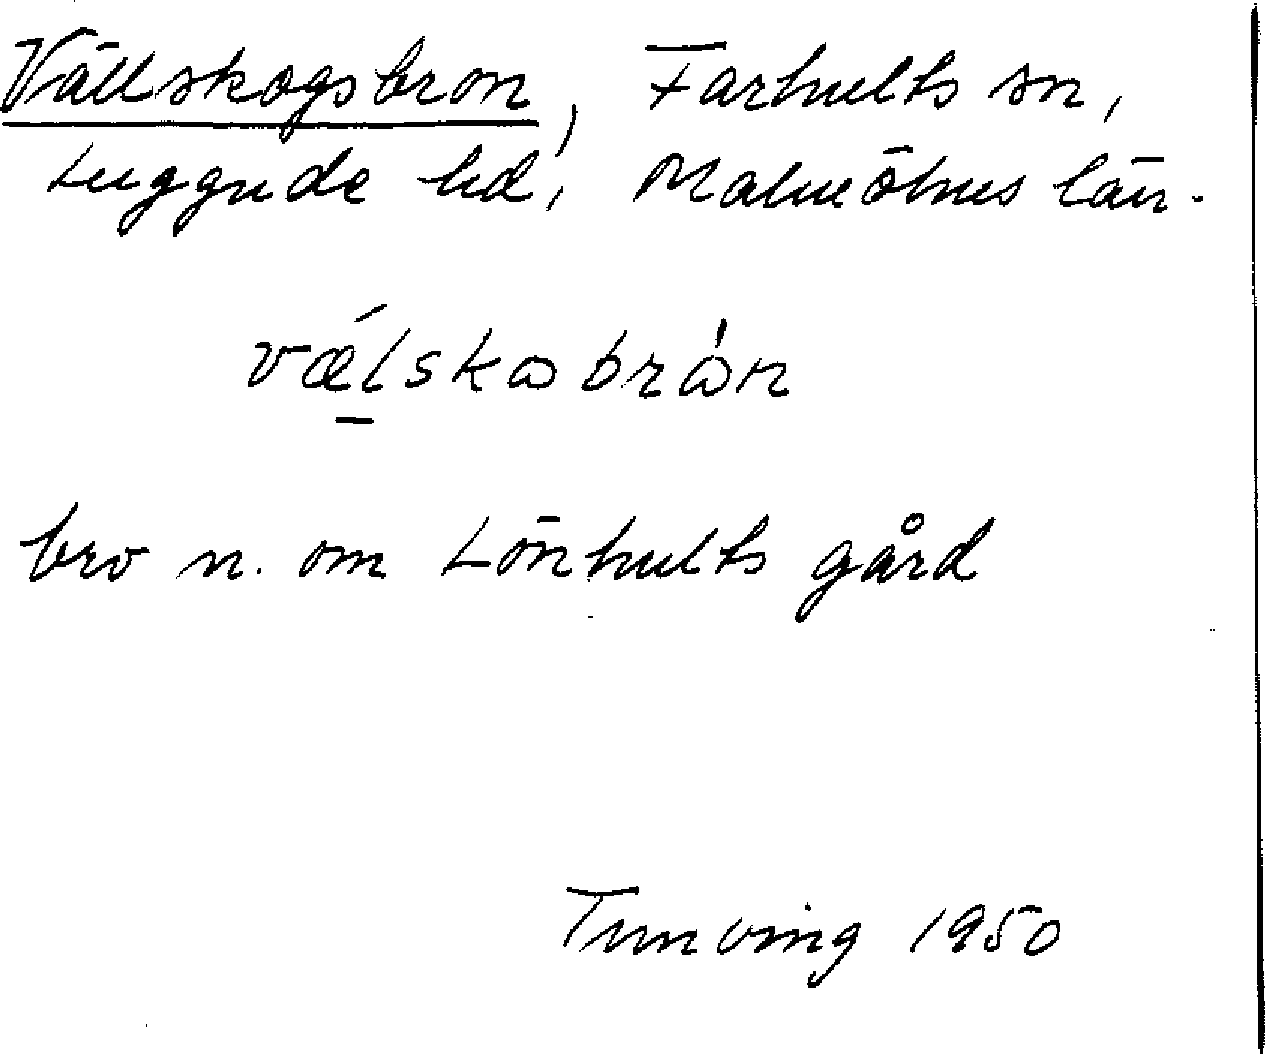 Vällskogsbron, Farhults sn,
Luggude hd, Malmöhus län.
vǽlskɷbrɷ̀n
bro n. om Lönhults gård
Tunving 1950